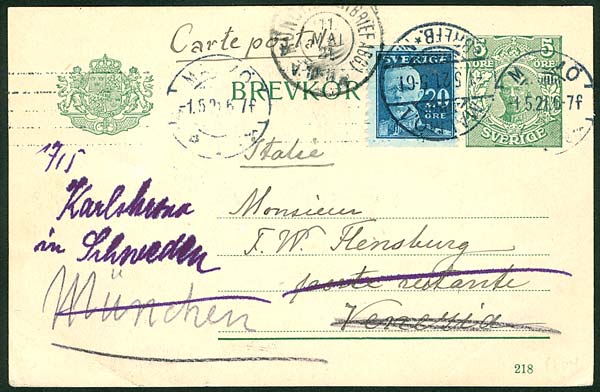 Carte postale
BREVKORT
5 5
ÖRE
SVERIGE
SVERIGE
20
ÖRE
MALMÖ
1.5.21.6-7f
1.5.21.6-7f
Italie
17/5
Karlskrona
in Schweden
München
Monsieur
F. W. Flensburg
poste restante
Venezia
218